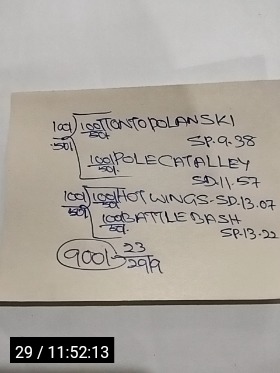 100/50/ 100/50/ TONTO POLANSKI
SP.9.38
100/50/ POLECATALLEY
SD.11.57
100/50/ 100/50/ HOT WINGS-SD.13.07
100/50/ BATTLE DASH
SP.13.22
900/- 23
29/9
29 / 11:52:13